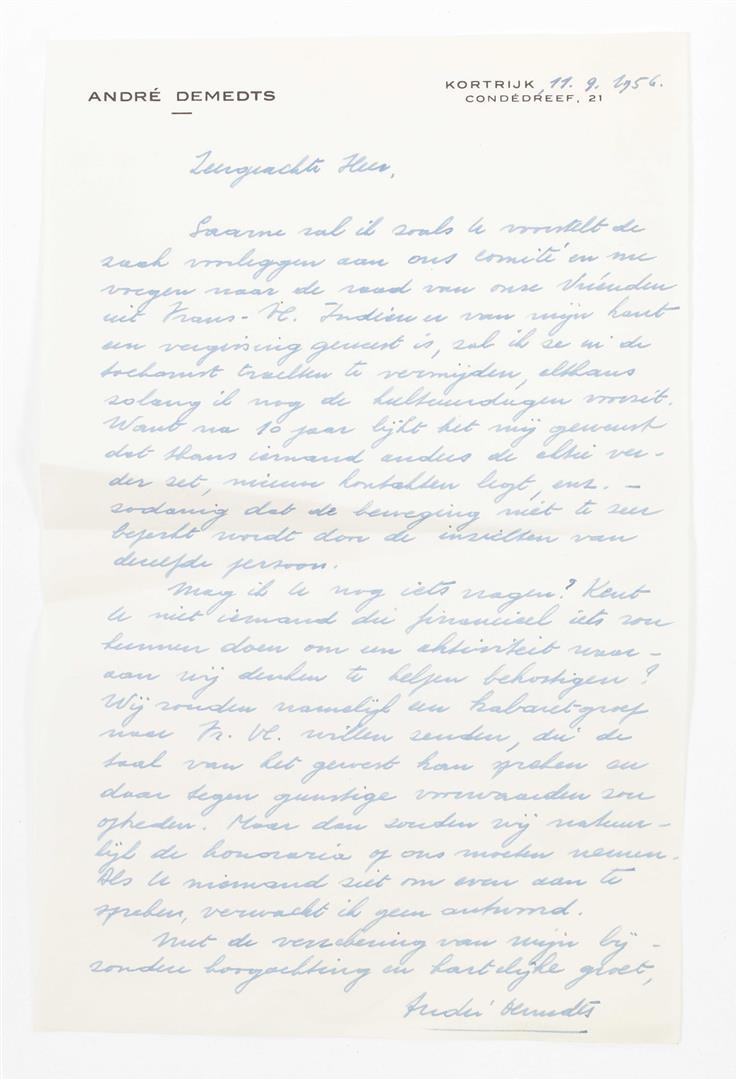 ANDRÉ DEMEDTS
KORTRIJK, 11. 9. 1956.
CONDÉDREEF, 21
Zeergeachte Heer,
Gaarne zal ik zoals U voorstelt de
zaak voorleggen aan ons comité en me
voegen naar de raad van onze Vrienden
uit Frans-Vl. Indien er van mijn kant
een vergissing geweest is, zal ik ze in de
toekomst trachten te vermijden, althans
zolang ik nog de kultuurdagen voorzit.
Want na 10 jaar lijkt het mij gewenst
dat thans iemand anders de aktie ver-
der zet, nieuwe kontakten legt, enz. -
zodanig dat de beweging niet te zeer
beperkt wordt door de inzichten van
dezelfde persoon.
Mag ik U nog iets vragen? Kent
U niet iemand die financieel iets zou
kunnen doen om een aktiviteit waar-
aan wij denken te helpen bekostigen?
Wij zouden namelijk een kabaret-groep
naar Fr. Vl. willen zenden, die de
taal van het gewest kan spreken en
daar tegen gunstige voorwaarden zou
optreden. Maar dan zouden wij natuur-
lijk de honoraria op ons moeten nemen.
Als U niemand ziet om even aan te
spreken, verwacht ik geen antwoord.
Met de verzekering van mijn bij-
zondere hoogachting en hartelijke groet,
André Demedts